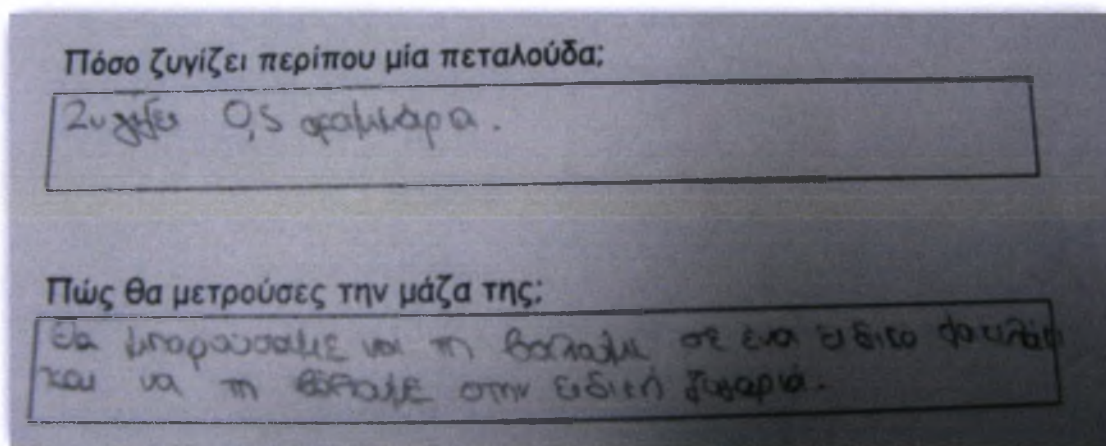 Πόσο ζυγίζει περίπου μία πεταλούδα;
Ζυγίζει 0,5 γραμμάρια.
Πώς θα μετρούσες την μάζα της;
Θα μπορούσαμε να τη βάλαμε σε ένα ειδικό
και να τη βάλαμε στην ειδική ζυγαριά.